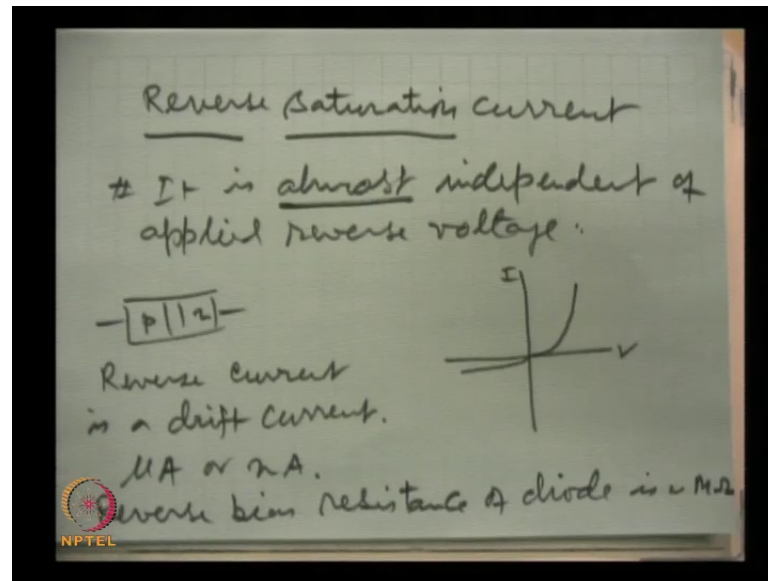 Reverse saturation current
# It is almost independent of
applied reverse voltage.
I
p n
V
Reverse current
is a drift current.
μA or nA.
Reverse bias resistance of diode is ~ MΩ
NPTEL